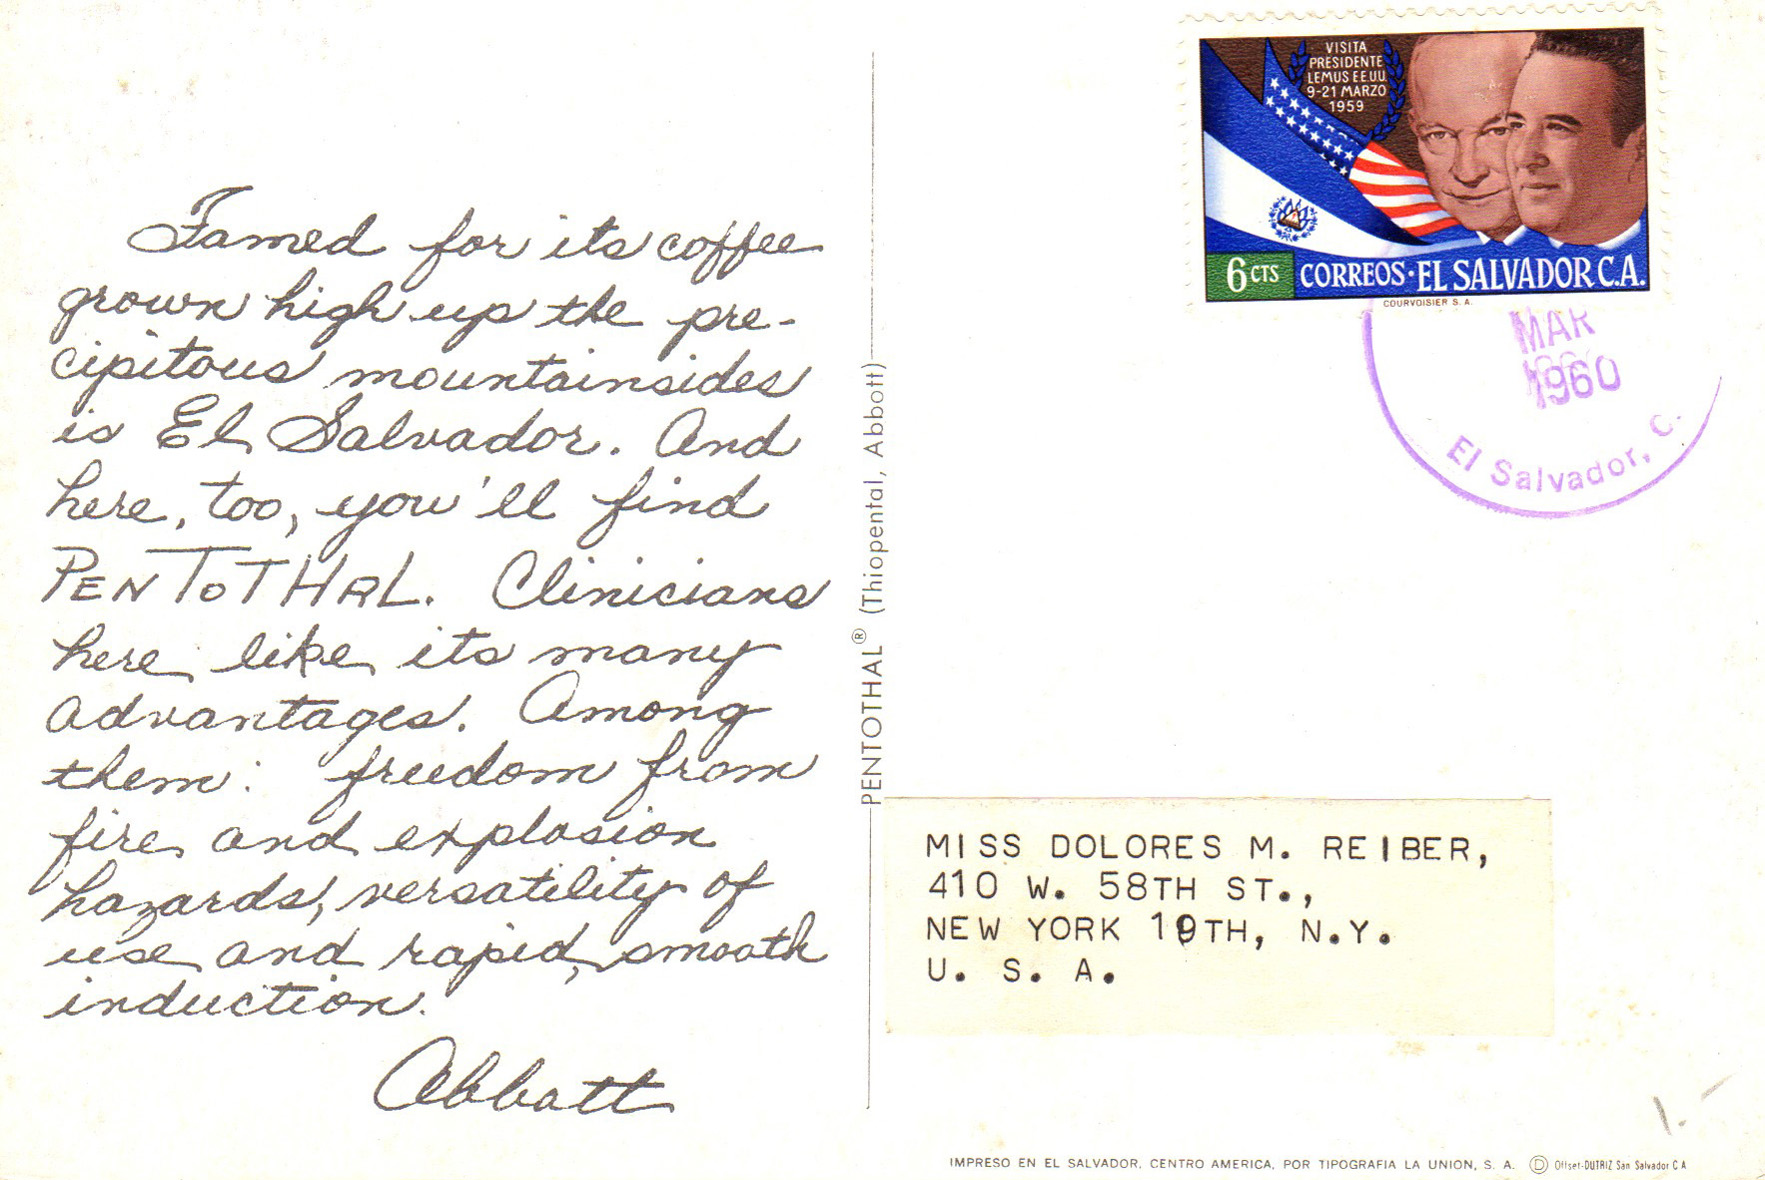 Famed for its coffee
grown high up the pre-
cipitous mountainsides
is El Salvador. And
here, too, you'll find
PENTOTHAL. Clinicians
here like its many
advantages. Among
them: freedom from
fire and explosion
hazards, versatility of
use and rapid, smooth
induction.
Abbott
PENTOTHAL® (Thiopental, Abbott)
VISITA
PRESIDENTE
LEMUS EE.UU.
9-21 MARZO
1959
6 CTS CORREOS·EL SALVADOR C.A.
COURVOISIER S.A.
MAR
1960
El Salvador, C.
MISS DOLORES M. REIBER,
410 W. 58TH ST.,
NEW YORK 19TH, N.Y.
U. S. A.
IMPRESO EN EL SALVADOR, CENTRO AMERICA, POR TIPOGRAFIA LA UNION, S. A. Ⓓ Offset-DUTRIZ San Salvador C A